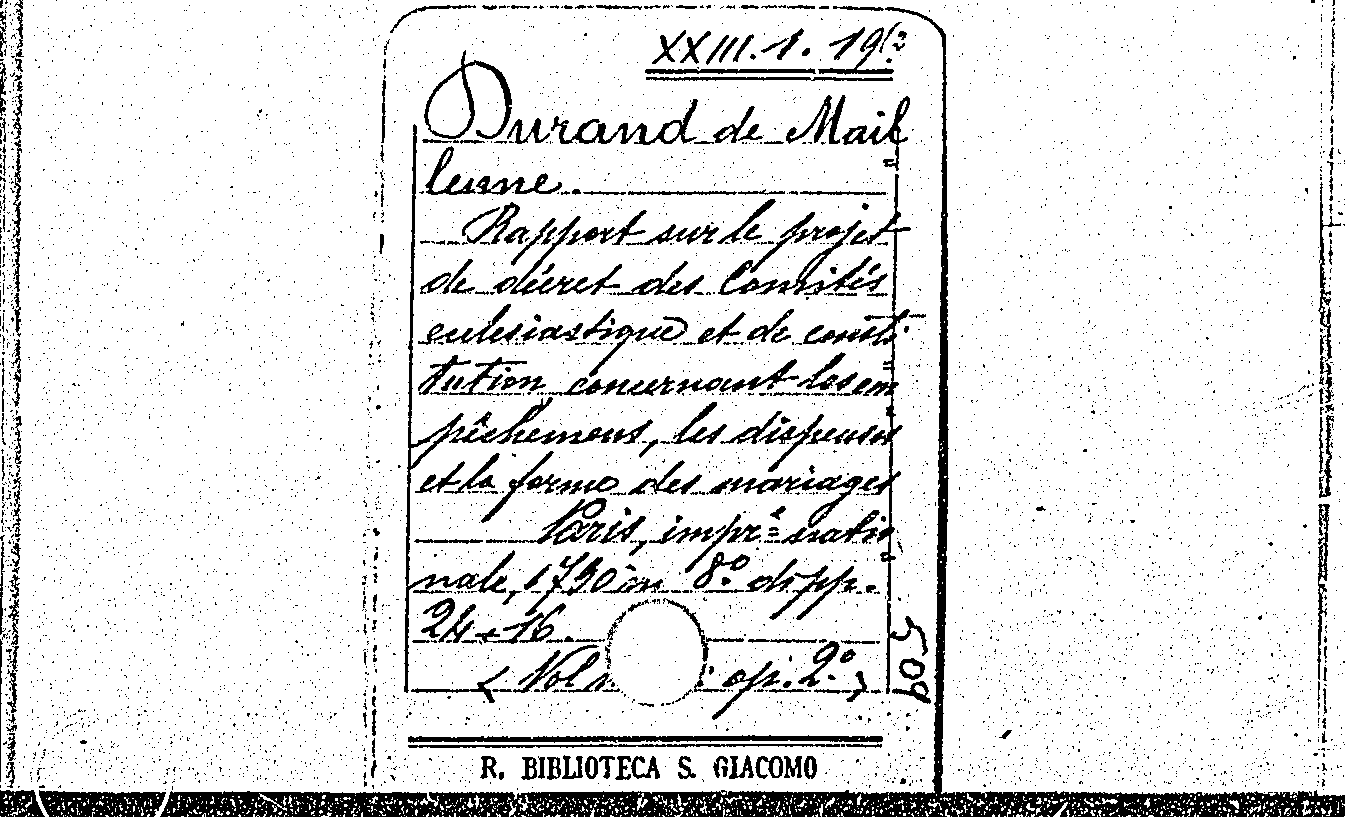 XXIII. 1. 19(2
Durand de Mail
lenne.
Rapport sur le projet
de décret des Comités
eclesiastique et de consti
tution concernant les em
pêchemens, les dispenses
et la forme des mariages
Paris, impr.e natio
nale, 1790 in 8.o di pp.
24 + 16.
(Vol op. 2.o)
509
R. BIBLIOTECA S. GIACOMO